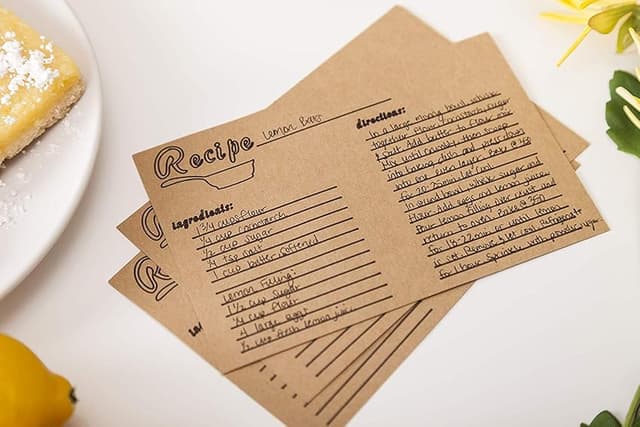 Recipe Lemon Bars
ingredients:
1 3/4 cups flour
1/4 cup cornstarch
1/2 cup sugar
1/4 tsp salt
1 cup butter softened
Lemon Filling:
1 1/2 cup sugar
1/4 cup flour
4 large eggs
1/2 cup fresh lemon juice
directions:
In a large mixing bowl whisk
together flour, cornstarch, sugar
& salt. Add butter to flour mix.
Mix until crumbly then scoop
into baking dish and press down
into one even layer. Bake @ 350
for 20-25 min
In a small bowl, whisk sugar and
flour. Add eggs and lemon juice.
Pour lemon filling over crust and
return to oven. Bake @ 350
for 18-22 min or until lemon
is set. Remove & let cool. Refrigerate
for 1 hour. Sprinkle with powder sugar
R
R